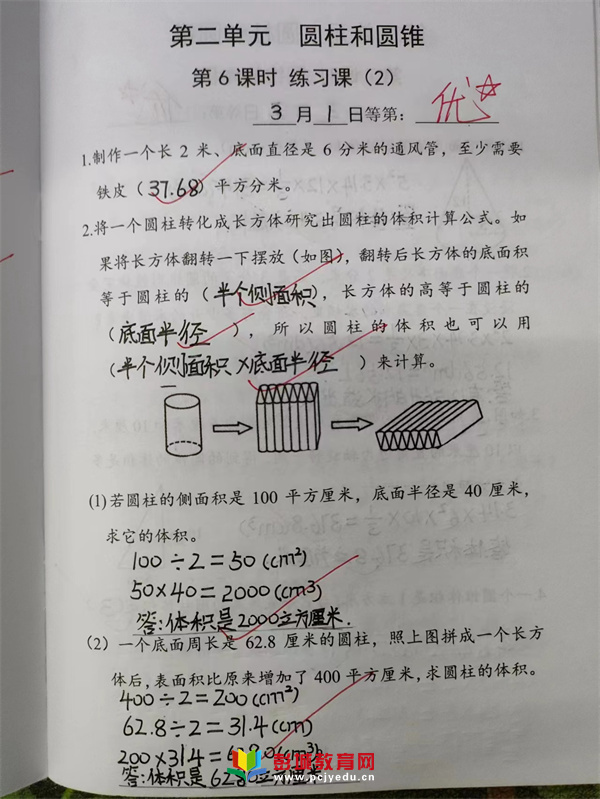 第二单元 圆柱和圆锥
第6课时 练习课（2）
3月1日等第：优☆
1.制作一个长2米、底面直径是6分米的通风管，至少需要
铁皮（37.68）平方分米。
2.将一个圆柱转化成长方体研究出圆柱的体积计算公式。如
果将长方体翻转一下摆放（如图），翻转后长方体的底面积
等于圆柱的（半个侧面积），长方体的高等于圆柱的
（底面半径），所以圆柱的体积也可以用
（半个侧面积×底面半径）来计算。
(1)若圆柱的侧面积是100平方厘米，底面半径是40厘米，
求它的体积。
100÷2=50(cm²)
50×40=2000(cm3)
答：体积是2000立方厘米.
（2）一个底面周长是62.8厘米的圆柱，照上图拼成一个长方
体后，表面积比原来增加了400平方厘米，求圆柱的体积。
400÷2=200(cm²)
62.8÷2=31.4(cm)
200×31.4=6280(cm3)
答：体积是6280立方厘米
彭城教育网
www.pcjyedu.cn